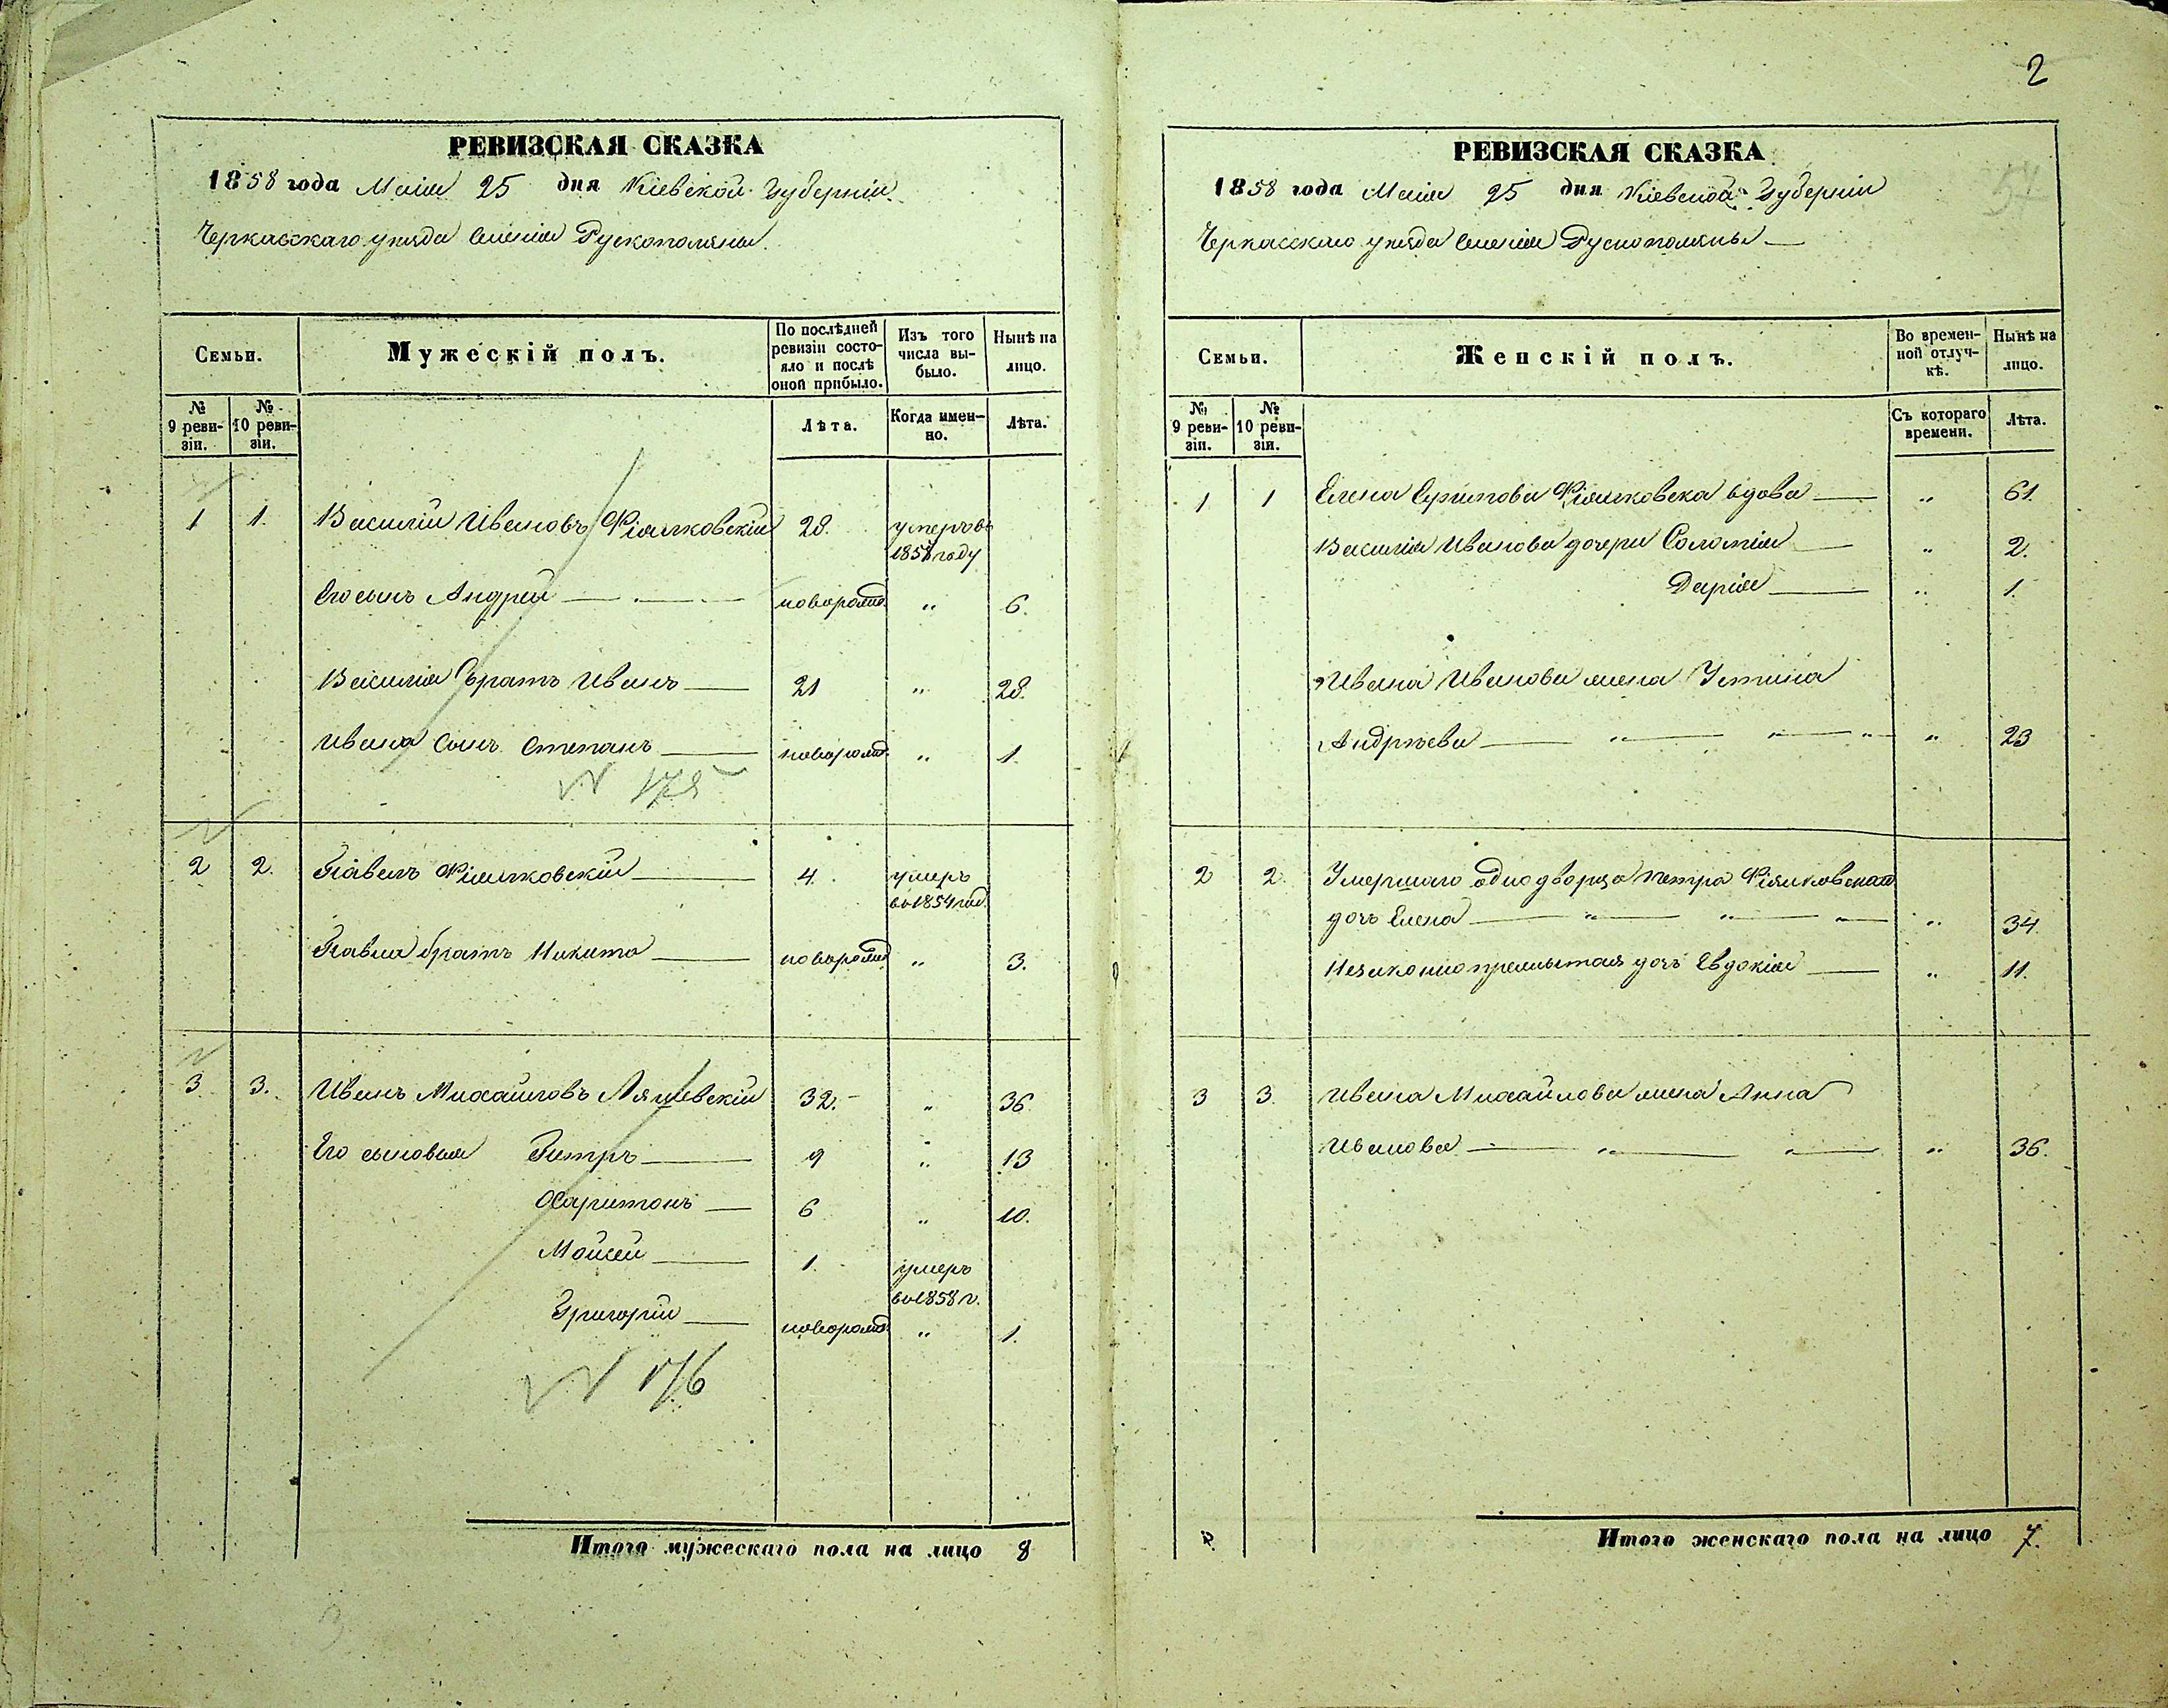 2
РЕВИЗСКАЯ СКАЗКА
1858 года Маія 25 дня Кіевской Губерніи
Черкасскаго уѣзда Селенія Рускополяны
Семьи.
Мужескій полъ.
По послѣдней ревизіи состояло и послѣ оной прибыло.
Изъ того числа выбыло.
Нынѣ на лицо.
№ 9 ревизіи.
№ 10 ревизіи.
Лѣта.
Когда именно.
Лѣта.
1 1. Василій Ивановъ Фіялковскій 28. умеръ въ
185 году
Его сынъ Андрей новорожд. " 6.
Василія братъ Иванъ 21 " 28.
Ивана сынъ Степанъ новорожд. " 1.
N 175
2 2. Павелъ Фіялковскій 4. умеръ
въ 1854 год.
Павла братъ Никита новорожд " 3.
3 3. Иванъ Михайловъ Ляшевскій 32. " 36.
Его сыновья Петръ 9 " 13
Харитонъ 6 " 10.
Мойсей 1. умеръ
въ 1858 г.
Григорій новорожд. " 1.
N 176
Итого мужескаго пола на лицо 8
РЕВИЗСКАЯ СКАЗКА
1858 года Маія 25 дня Кіевской Губерніи
Черкасскаго уѣзда Селенія Рускополяны
Семьи.
Женскій полъ.
Во временной отлучкѣ.
Нынѣ на лицо.
№ 9 ревизіи.
№ 10 ревизіи.
Съ котораго времени.
Лѣта.
1 1 Елена Фіялковска вдова " 61.
Василія Иванова дочери Соломія " 2.
Дарія " 1.
Ивана Иванова жена Устина
Андрѣева " " " " 23
2 2. Умершаго однодворца Петра Фіялковскаго
дочь Елена " " " 34.
Незаконноприжитая дочь Евдокія " 11.
3 3. Ивана Михайлова жена Анна
Иванова " " " 36.
Итого женскаго пола на лицо 7.